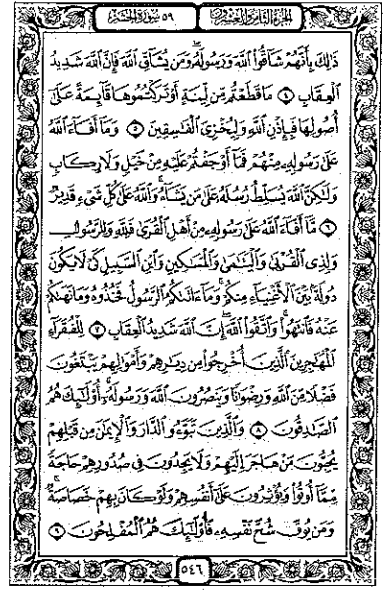 الجزء الثامن والعشرون
٥٩ سورة الحشر
ذَٰلِكَ بِأَنَّهُمْ شَآقُّوا۟ ٱللَّهَ وَرَسُولَهُۥ ۖ وَمَن يُشَآقِّ ٱللَّهَ فَإِنَّ ٱللَّهَ شَدِيدُ
ٱلْعِقَابِ ٤ مَا قَطَعْتُم مِّن لِّينَةٍ أَوْ تَرَكْتُمُوهَا قَآئِمَةً عَلَىٰٓ
أُصُولِهَا فَبِإِذْنِ ٱللَّهِ وَلِيُخْزِىَ ٱلْفَٰسِقِينَ ٥ وَمَآ أَفَآءَ ٱللَّهُ
عَلَىٰ رَسُولِهِۦ مِنْهُمْ فَمَآ أَوْجَفْتُمْ عَلَيْهِ مِنْ خَيْلٍ وَلَا رِكَابٍ
وَلَٰكِنَّ ٱللَّهَ يُسَلِّطُ رُسُلَهُۥ عَلَىٰ مَن يَشَآءُ ۚ وَٱللَّهُ عَلَىٰ كُلِّ شَىْءٍ قَدِيرٌ
٦ مَّآ أَفَآءَ ٱللَّهُ عَلَىٰ رَسُولِهِۦ مِنْ أَهْلِ ٱلْقُرَىٰ فَلِلَّهِ وَلِلرَّسُولِ
وَلِذِى ٱلْقُرْبَىٰ وَٱلْيَتَٰمَىٰ وَٱلْمَسَٰكِينِ وَٱبْنِ ٱلسَّبِيلِ كَىْ لَا يَكُونَ
دُولَةًۢ بَيْنَ ٱلْأَغْنِيَآءِ مِنكُمْ ۚ وَمَآ ءَاتَىٰكُمُ ٱلرَّسُولُ فَخُذُوهُ وَمَا نَهَىٰكُمْ
عَنْهُ فَٱنتَهُوا۟ ۚ وَٱتَّقُوا۟ ٱللَّهَ ۖ إِنَّ ٱللَّهَ شَدِيدُ ٱلْعِقَابِ ٧ لِلْفُقَرَآءِ
ٱلْمُهَٰجِرِينَ ٱلَّذِينَ أُخْرِجُوا۟ مِن دِيَٰرِهِمْ وَأَمْوَٰلِهِمْ يَبْتَغُونَ
فَضْلًا مِّنَ ٱللَّهِ وَرِضْوَٰنًا وَيَنصُرُونَ ٱللَّهَ وَرَسُولَهُۥٓ ۚ أُو۟لَٰٓئِكَ هُمُ
ٱلصَّٰدِقُونَ ٨ وَٱلَّذِينَ تَبَوَّءُو ٱلدَّارَ وَٱلْإِيمَٰنَ مِن قَبْلِهِمْ
يُحِبُّونَ مَنْ هَاجَرَ إِلَيْهِمْ وَلَا يَجِدُونَ فِى صُدُورِهِمْ حَاجَةً
مِّمَّآ أُوتُوا۟ وَيُؤْثِرُونَ عَلَىٰٓ أَنفُسِهِمْ وَلَوْ كَانَ بِهِمْ خَصَاصَةٌ ۚ
وَمَن يُوقَ شُحَّ نَفْسِهِۦ فَأُو۟لَٰٓئِكَ هُمُ ٱلْمُفْلِحُونَ ٩
٥٤٦